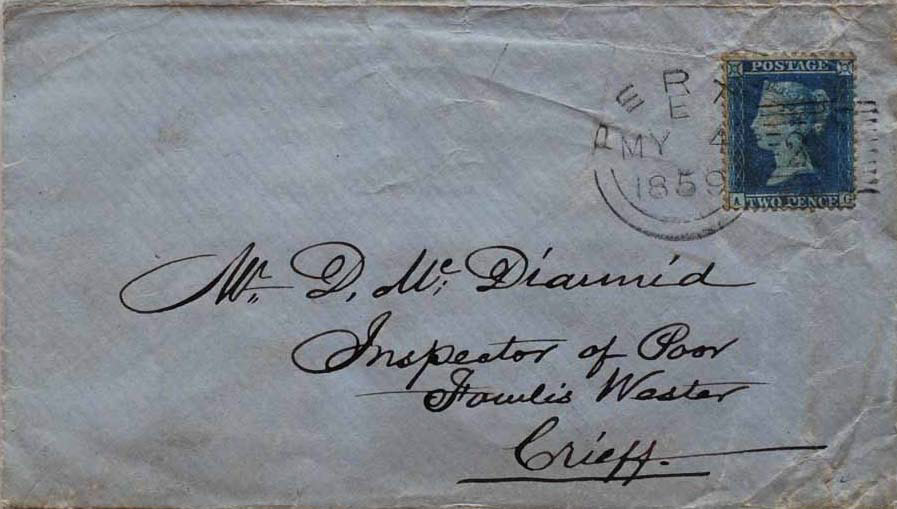 PER
E
MY 4
1859
POSTAGE
A TWO PENCE G
Mr. D. Mc. Diarmid
Inspector of Poor
Fowlis Wester
Crieff.